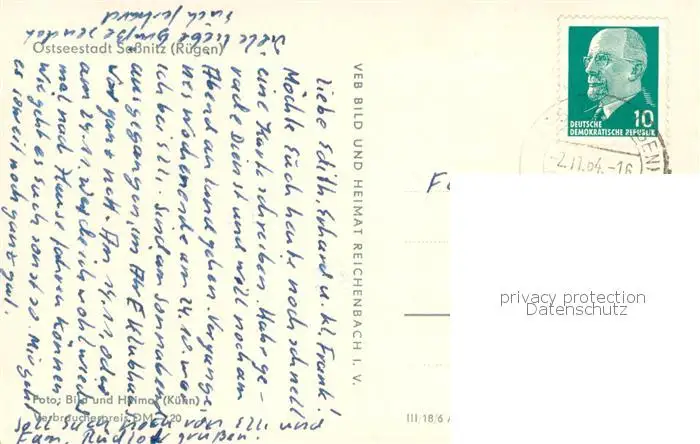 Ostseestadt Saßnitz (Rügen)
Liebe Edith, Erhard u. kl. Frank!
Möchte Euch heute noch schnell
eine Karte schreiben. Habe ge-
rade Dienst und will noch am
Abend an Land gehen. Vergange-
nes Wochenende am 24.10. war
ich bei Elli. Sind am Sonnabend
ausgegangen, im Klubhaus
War ganz nett. Am 14.11. oder
am 24.11. werde ich wohl wieder
mal nach Hause fahren können.
Wie geht es Euch sonst so. Mir geht
es soweit noch ganz gut.
Viele liebe Grüße sendet
Euch
soll Euch noch von Elli und
Fam. grüßen.
Foto: Bild und Heimat (Kühn)
Verbraucherpreis DM 0,20
VEB BILD UND HEIMAT REICHENBACH I. V.
III 18/6
10
DEUTSCHE
DEMOKRATISCHE REPUBLIK
-2.11.64.-16
privacy protection
Datenschutz